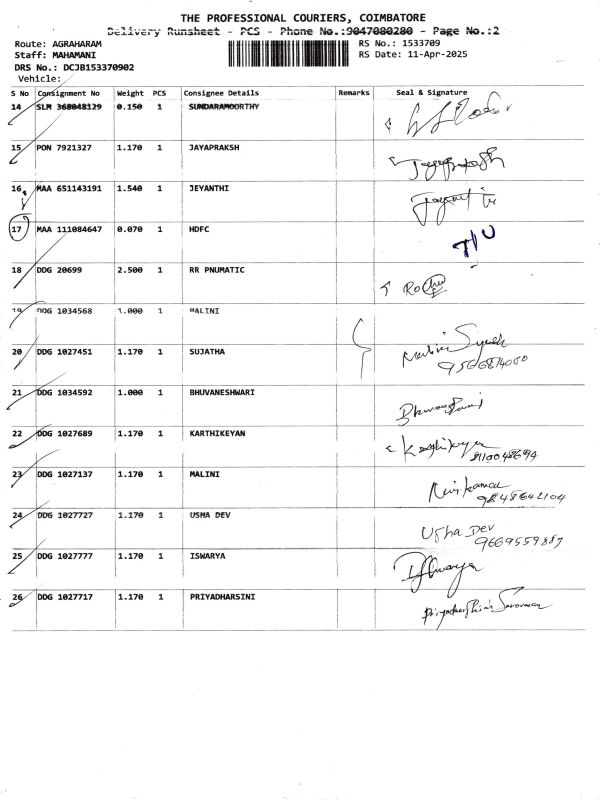 THE PROFESSIONAL COURIERS, COIMBATORE
Delivery Runsheet - PCS - Phone No.:9047080280 - Page No.:2
Route: AGRAHARAM RS No.: 1533709
Staff: MAHAMANI RS Date: 11-Apr-2025
DRS No.: DCJB153370902
Vehicle:
S No Consignment No Weight PCS Consignee Details Remarks Seal & Signature
14 SLM 368048129 0.150 1 SUNDARAMOORTHY
15 PON 7921327 1.170 1 JAYAPRAKSH Jayaprakash
16 MAA 651143191 1.540 1 JEYANTHI
17 MAA 111084647 0.070 1 HDFC
18 DDG 20699 2.500 1 RR PNUMATIC
19 DDG 1034568 1.000 1 MALINI
20 DDG 1027451 1.170 1 SUJATHA
21 DDG 1034592 1.000 1 BHUVANESHWARI
22 DDG 1027689 1.170 1 KARTHIKEYAN
23 DDG 1027137 1.170 1 MALINI
24 DDG 1027727 1.170 1 USHA DEV Usha Dev
9669559887
25 DDG 1027777 1.170 1 ISWARYA
26 DDG 1027717 1.170 1 PRIYADHARSINI